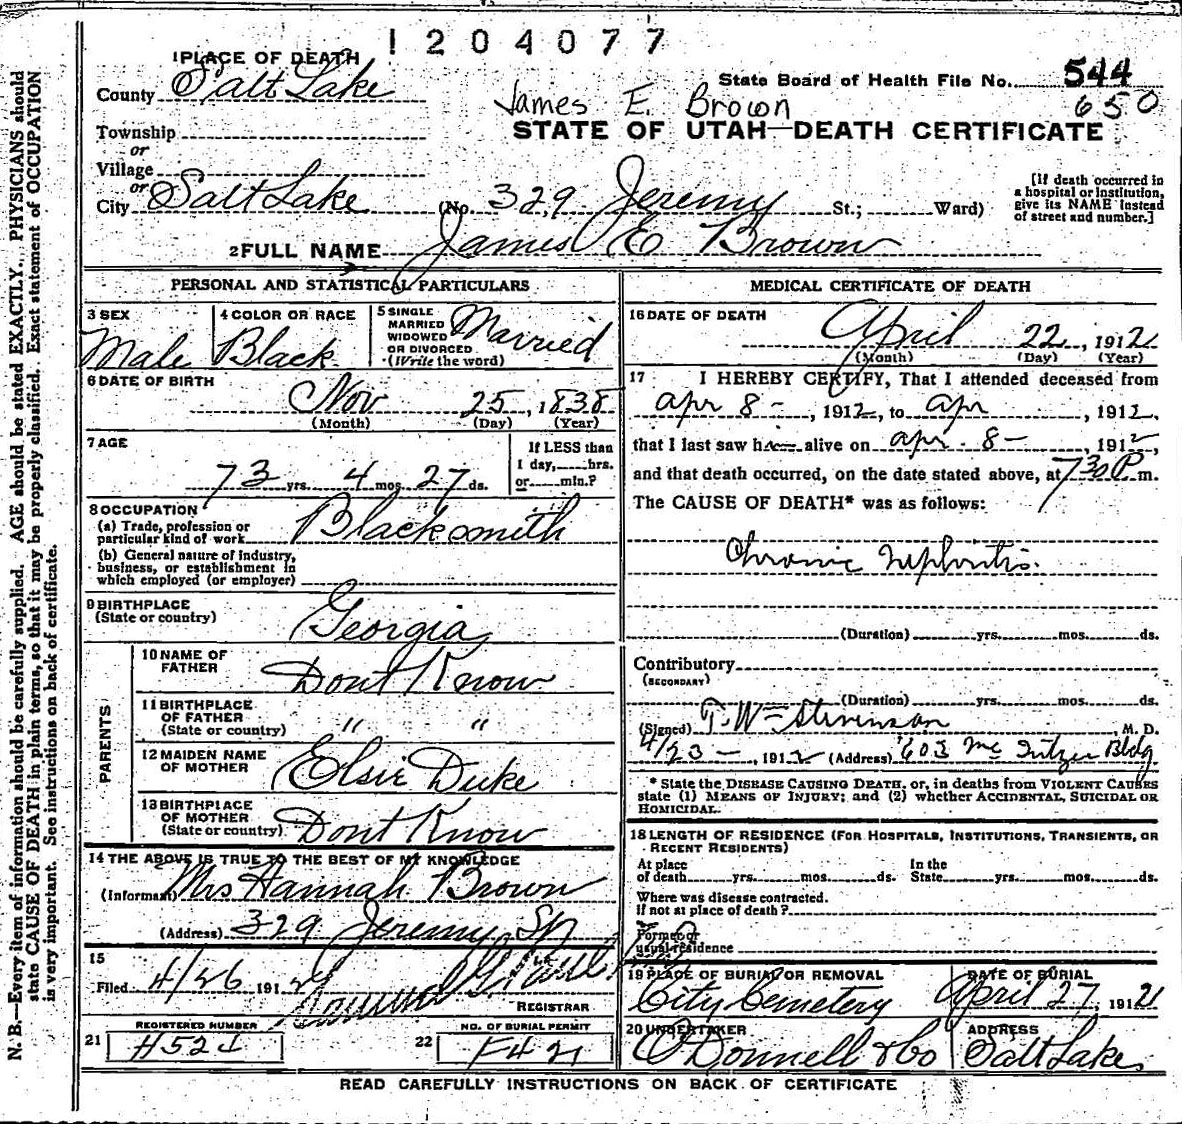 1204077
1 PLACE OF DEATH
County Salt Lake
State Board of Health File No. 544
650
James E. Brown
STATE OF UTAH—DEATH CERTIFICATE
Township
or
Village
or
City Salt Lake (No. 329 Jeremy St.; Ward)
[If death occurred in
a hospital or institution,
give its NAME instead
of street and number.]
2 FULL NAME James E Brown
PERSONAL AND STATISTICAL PARTICULARS
3 SEX
Male
4 COLOR OR RACE
Black
5 SINGLE
MARRIED
WIDOWED
OR DIVORCED
(Write the word)
Married
6 DATE OF BIRTH
Nov 25, 1838
(Month) (Day) (Year)
7 AGE
73 yrs. 4 mos. 27 ds.
If LESS than
1 day, hrs.
or min.?
8 OCCUPATION
(a) Trade, profession or
particular kind of work Blacksmith
(b) General nature of industry,
business, or establishment in
which employed (or employer)
9 BIRTHPLACE
(State or country)
Georgia
PARENTS
10 NAME OF
FATHER
Dont Know
11 BIRTHPLACE
OF FATHER
(State or country) " "
12 MAIDEN NAME
OF MOTHER
Elsie Duke
13 BIRTHPLACE
OF MOTHER
(State or country) Dont Know
14 THE ABOVE IS TRUE TO THE BEST OF MY KNOWLEDGE
(Informant) Mrs Hannah Brown
(Address) 329 Jeremy St
15
Filed 4/26 191
REGISTRAR
REGISTERED NUMBER
21 H521
NO. OF BURIAL PERMIT
22 F421
MEDICAL CERTIFICATE OF DEATH
16 DATE OF DEATH
April 22, 1912
(Month) (Day) (Year)
17 I HEREBY CERTIFY, That I attended deceased from
apr 8 -, 1912, to apr, 1912,
that I last saw him alive on apr. 8 -, 1912,
and that death occurred, on the date stated above, at 730 P.m.
The CAUSE OF DEATH* was as follows:
Chronic Nephritis.
(Duration) yrs. mos. ds.
Contributory
(SECONDARY)
(Duration) yrs. mos. ds.
(Signed) T. W. Stevenson M. D.
4/23 -, 1912 (Address) 603 Bldg
* State the DISEASE CAUSING DEATH, or, in deaths from VIOLENT CAUSES
state (1) MEANS OF INJURY; and (2) whether ACCIDENTAL, SUICIDAL OR
HOMICIDAL.
18 LENGTH OF RESIDENCE (FOR HOSPITALS, INSTITUTIONS, TRANSIENTS, OR
RECENT RESIDENTS)
At place
of death yrs. mos. ds.
In the
State yrs. mos. ds.
Where was disease contracted.
if not at place of death?
Former or
usual residence
19 PLACE OF BURIAL OR REMOVAL
City Cemetery
DATE OF BURIAL
April 27, 1912
20 UNDERTAKER
O'Donnell & Co
ADDRESS
Salt Lake
READ CAREFULLY INSTRUCTIONS ON BACK OF CERTIFICATE
N. B.—Every item of information should be carefully supplied. AGE should be stated EXACTLY. PHYSICIANS should
state CAUSE OF DEATH in plain terms, so that it may be properly classified. Exact statement of OCCUPATION
is very important. See instructions on back of certificate.